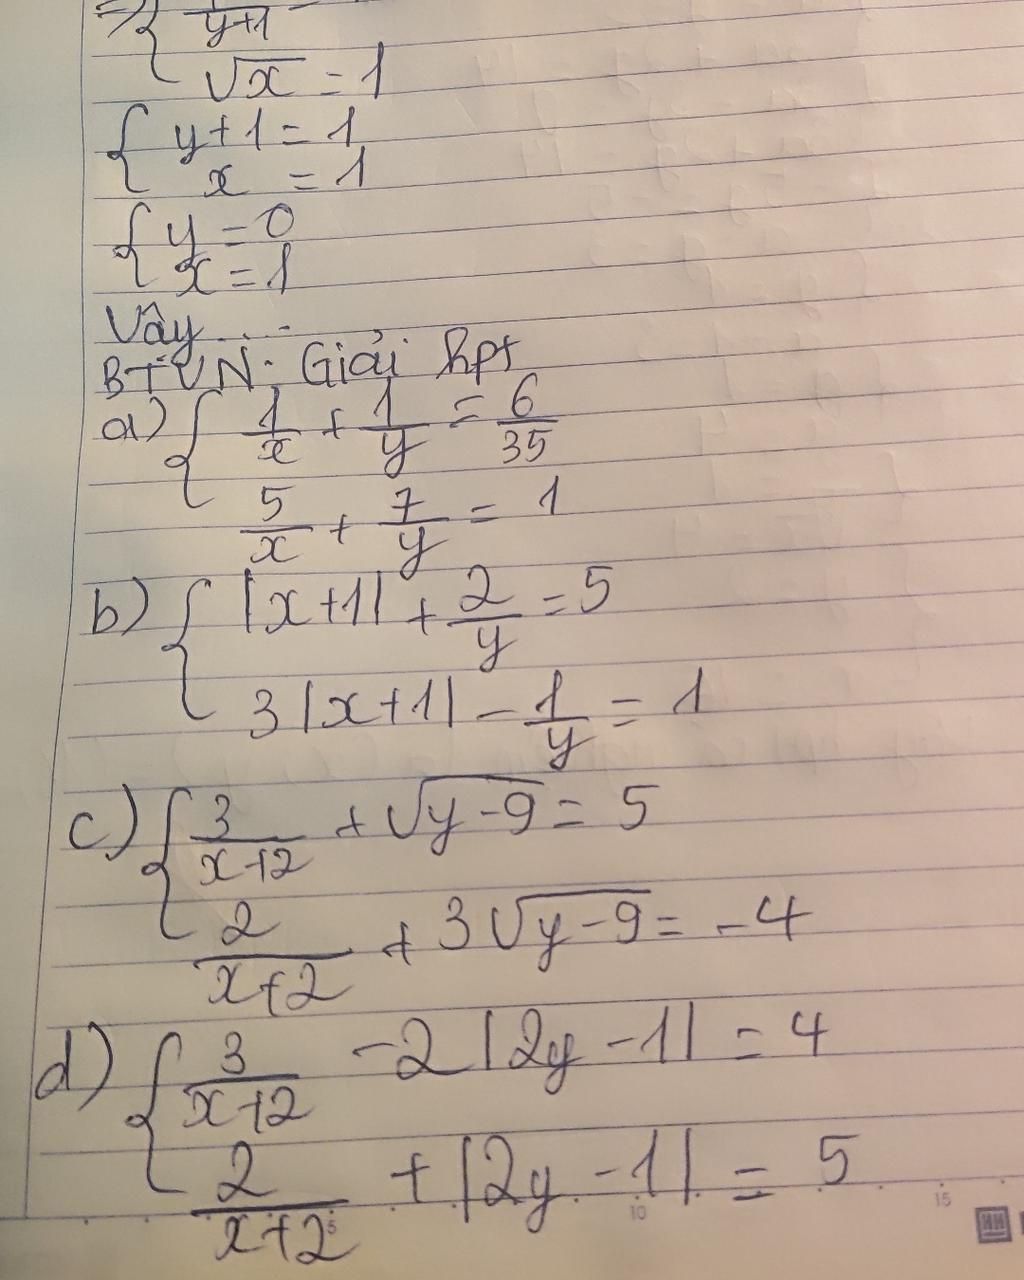 ⇒ { 1/(y+1) =
√x = 1
{ y+1 = 1
x = 1
{ y = 0
x = 1
Vậy....
BTVN: Giải hpt
a) { 1/x + 1/y = 6/35
5/x + 7/y = 1
b) { |x+1| + 2/y = 5
3|x+1| - 1/y = 1
c) { 3/(x+2) + √(y-9) = 5
2/(x+2) + 3√(y-9) = -4
d) { 3/(x+2) -2|2y-1| = 4
2/(x+2) + |2y-1| = 5
5 10 15